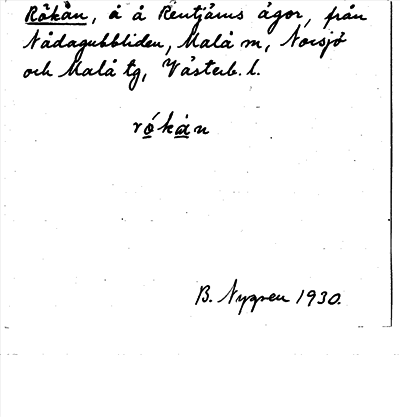 Rökån, å å Rentjärns ägor, från
Nådagubbliden, Malå m, Norsjö
och Malå tg, Västerb. l.
rókån
B. Nygren 1930.